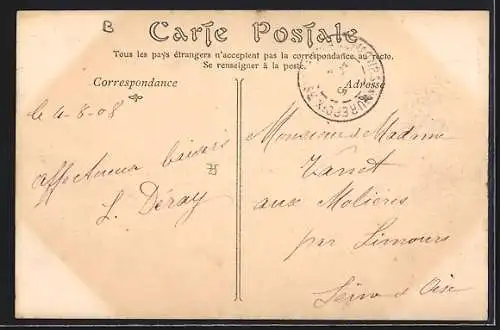 B
Carte Postale
Tous les pays étrangers n'acceptent pas la correspondance au recto.
Se renseigner à la poste.
Correspondance
Adresse
le 4-8-08
affectueux baisers
L. Déray
Monsieur & Madame
aux Molières
par Limours
Seine et Oise